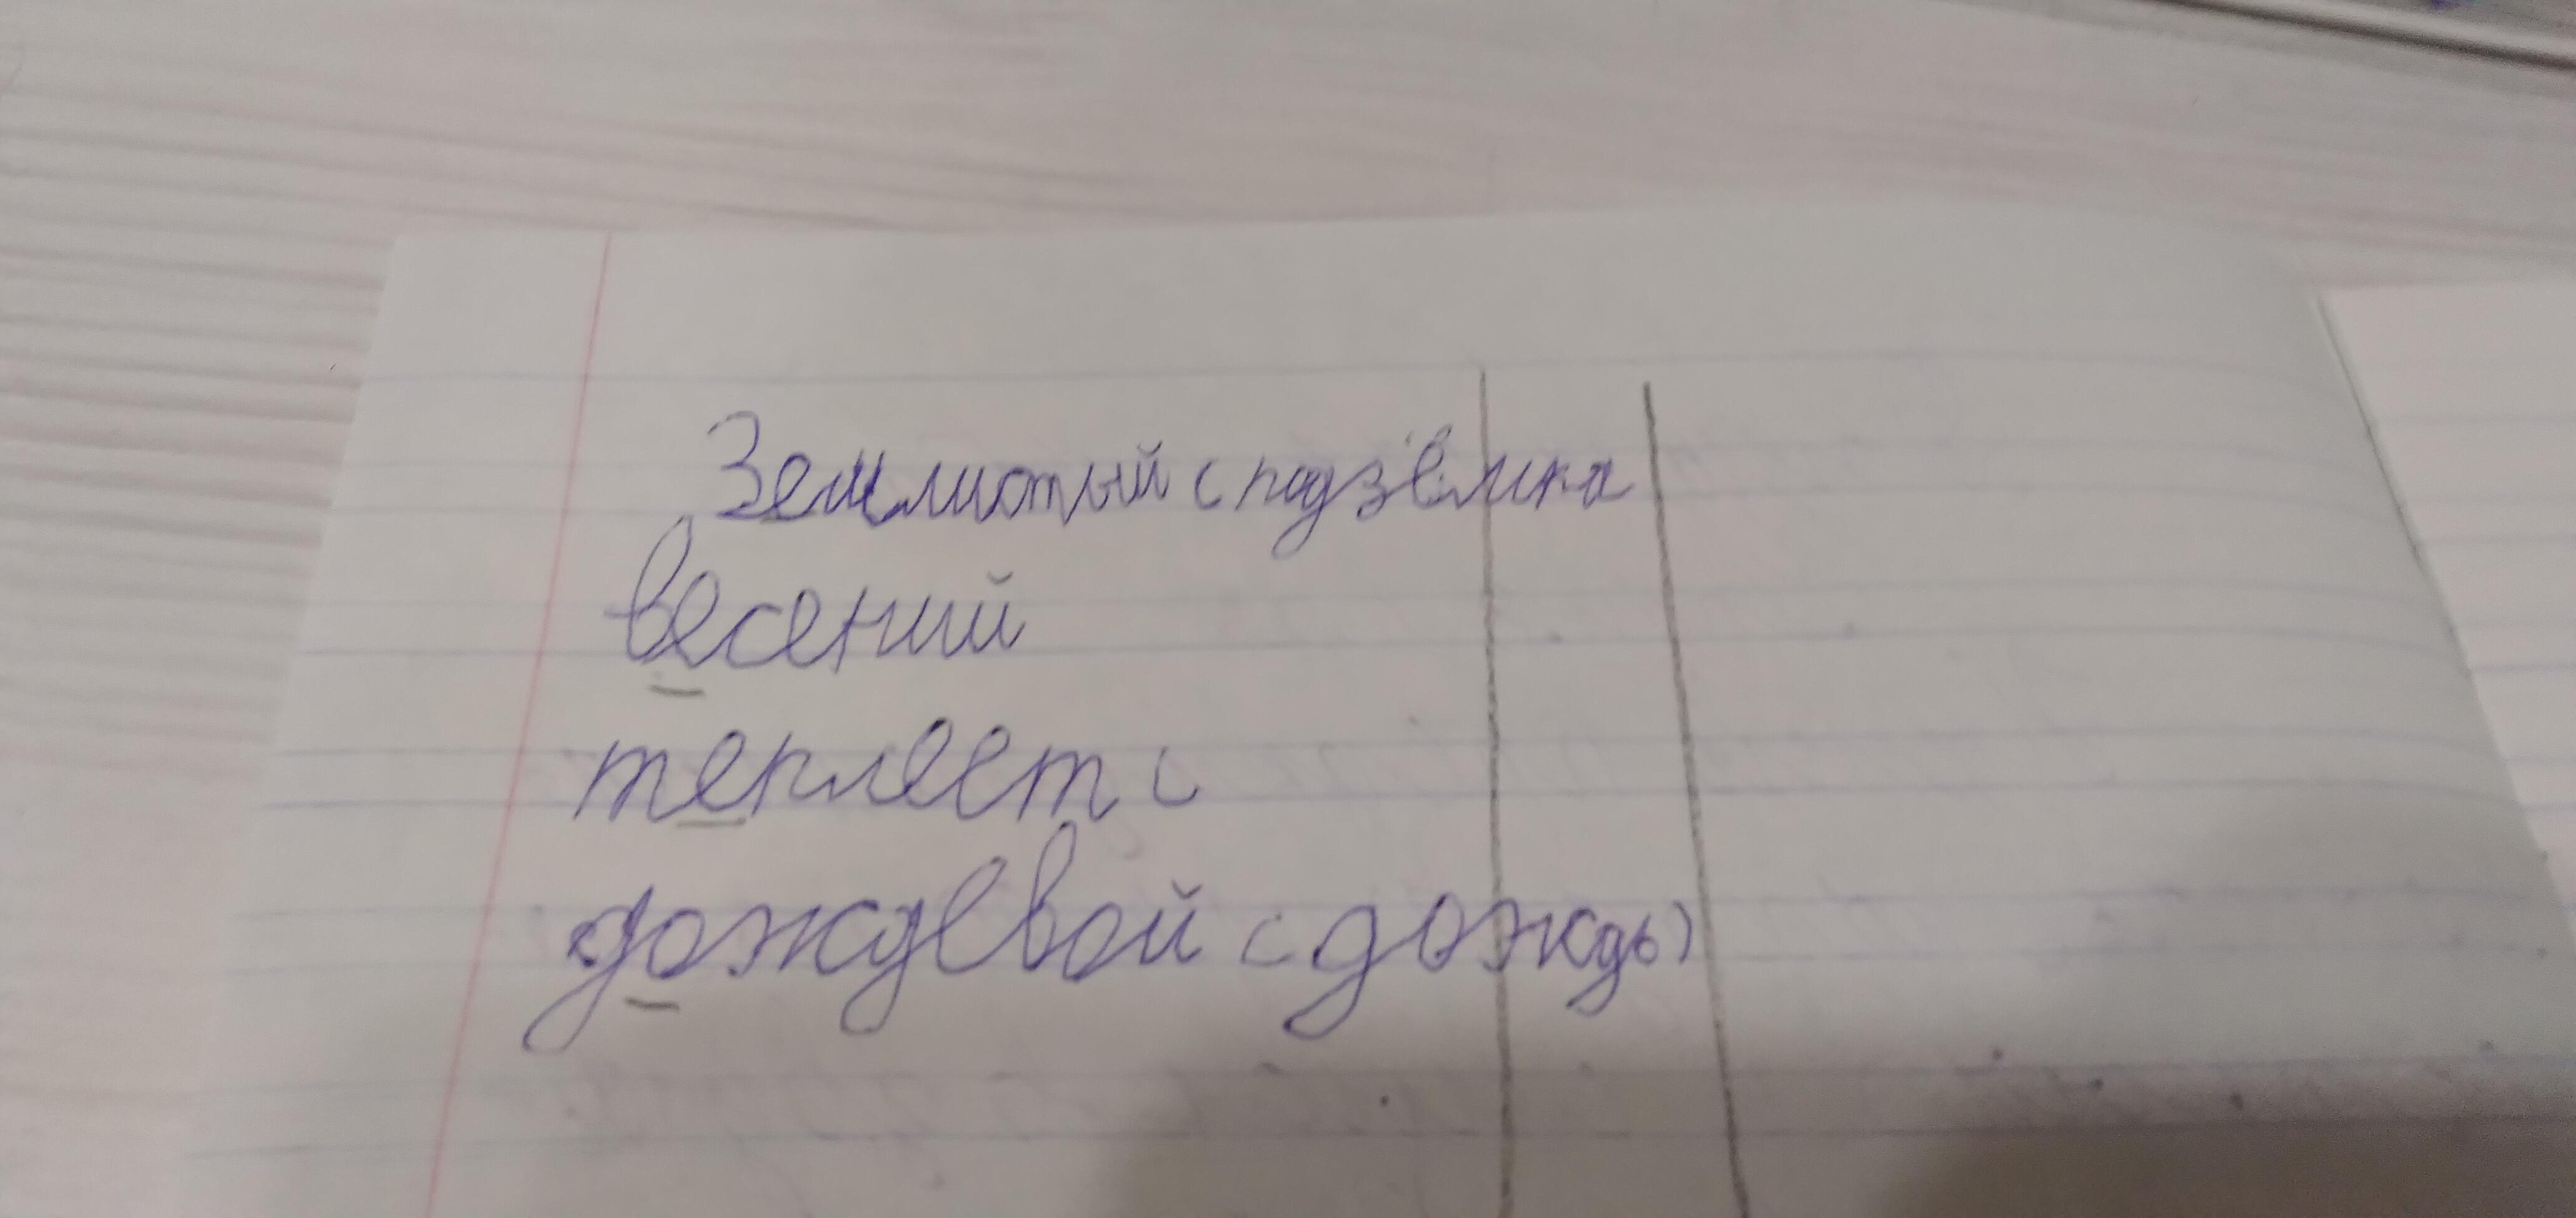 Землистый ( подзёмка
весений
теплеет (
дождевой ( дождь)